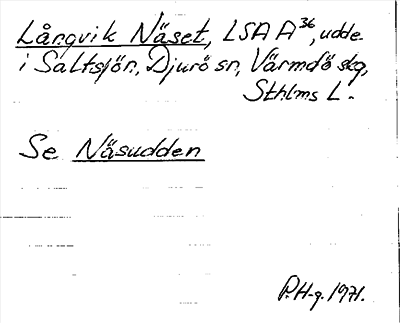 Långvik Näset, LSA A³⁶, udde
i Saltsjön, Djurö sn, Värmdö skg,
Sthlms L.
Se Näsudden
P.H-g. 1971.